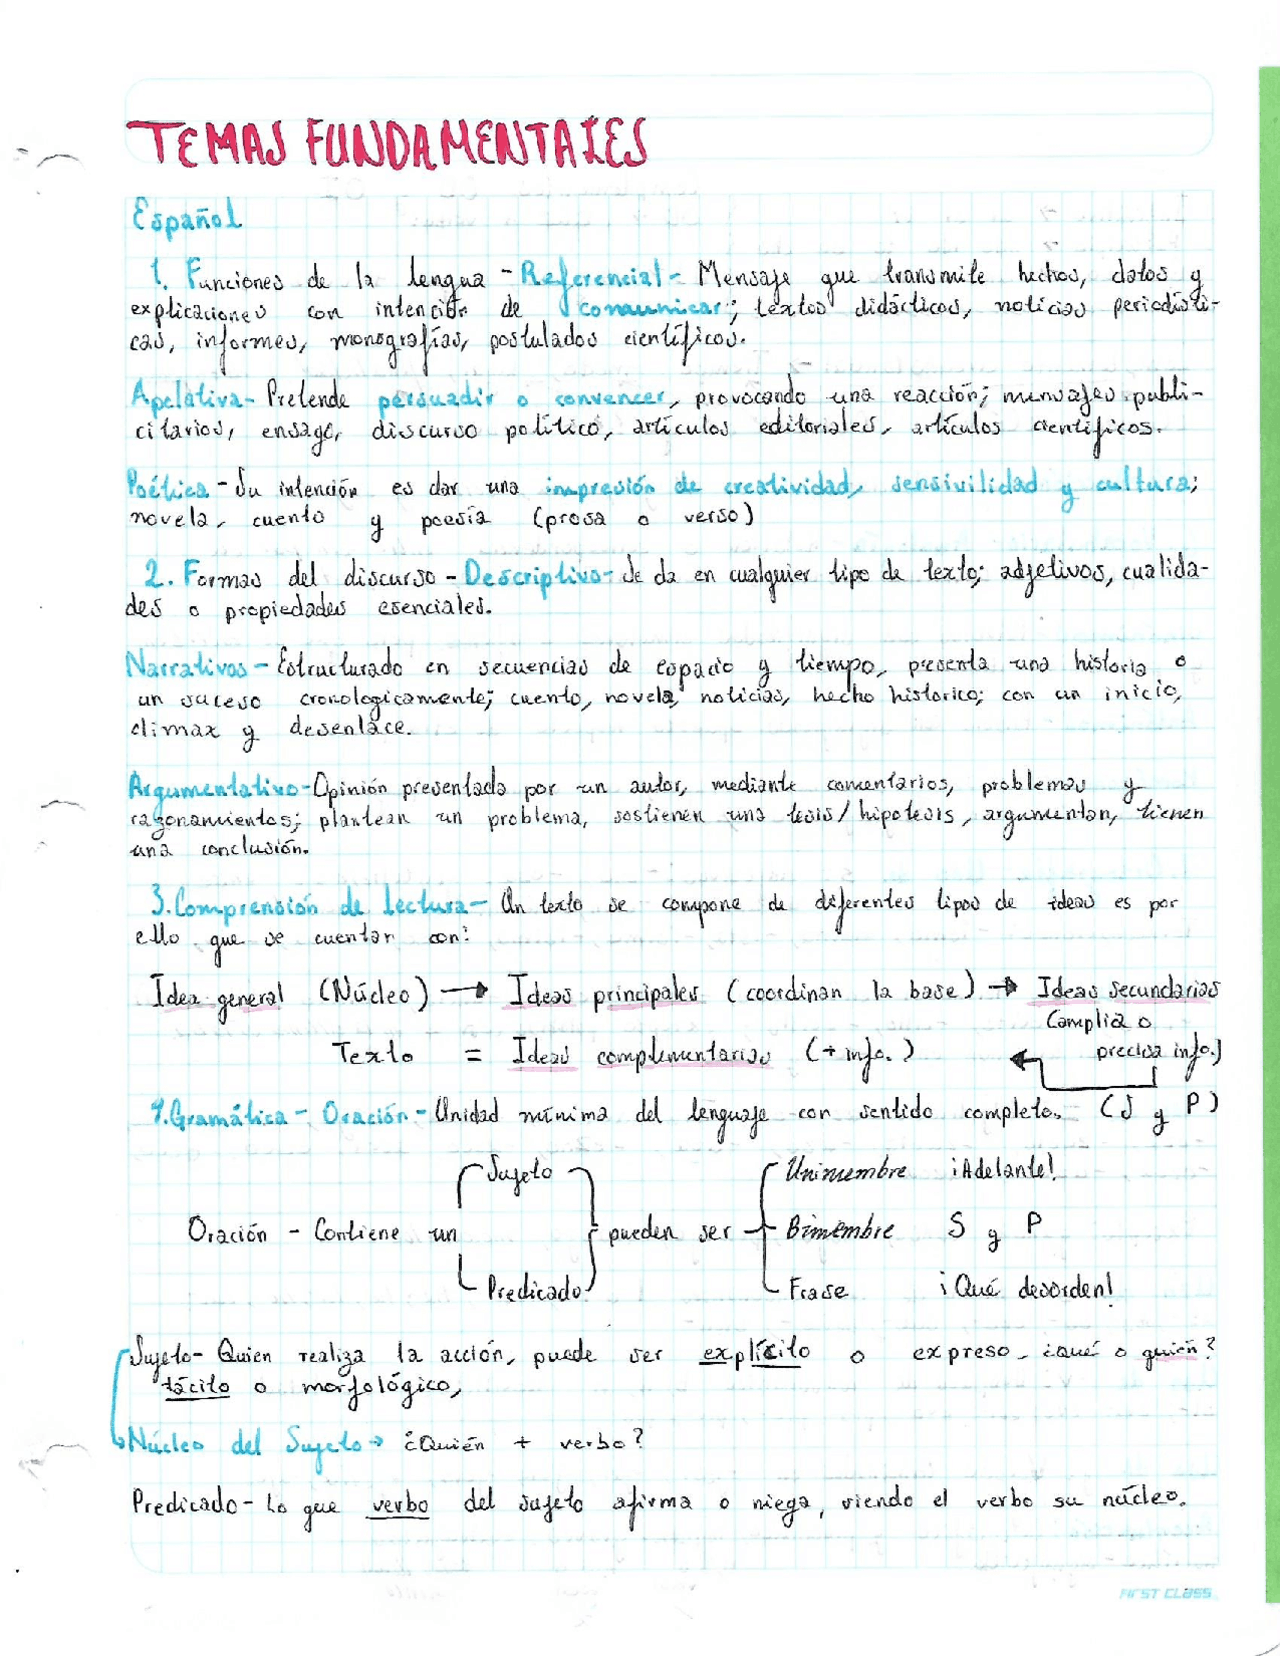 TEMAS FUNDAMENTALES
Español
1. Funciones de la lengua - Referencial - Mensaje que transmite hechos, datos y
explicaciones con intención de comunicar; textos didácticos, noticias periodísti-
cas, informes, monografías, postulados científicos.
Apelativa - Pretende persuadir o convencer, provocando una reacción; mensajes publi-
citarios, ensayo, discurso político, artículos editoriales, artículos científicos.
Poética - Su intención es dar una impresión de creatividad, sensivilidad y cultura;
novela, cuento y poesía (prosa o verso)
2. Formas del discurso - Descriptivo - Se da en cualquier tipo de texto; adjetivos, cualida-
des o propiedades esenciales.
Narrativos - Estructurado en secuencias de espacio y tiempo, presenta una historia o
un suceso cronologicamente; cuento, novela, noticias, hecho historico; con un inicio,
climax y desenlace.
Argumentativo - Opinión presentada por un autor, mediante comentarios, problemas y
razonamientos; plantean un problema, sostienen una tesis/hipotesis, argumentan, tienen
una conclusión.
3. Comprensión de Lectura - Un texto se compone de diferentes tipos de ideas es por
ello que se cuentan con:
Idea general (Núcleo) → Ideas principales (coordinan la base) → Ideas secundarias
(amplia o
Texto = Ideas complementarias (+ info.) precisa info.)
4. Gramática - Oración - Unidad mínima del lenguaje con sentido completo. (S y P)
Sujeto Unimembre ¡Adelante!
Oración - Contiene un pueden ser Bimembre S y P
Predicado Frase ¡Qué desorden!
Sujeto - Quien realiza la acción, puede ser explícito o expreso - ¿qué o quién?
tácito o morfológico,
Núcleo del Sujeto → ¿Quién + verbo?
Predicado - Lo que verbo del sujeto afirma o niega, siendo el verbo su núcleo.
FIRST CLASS